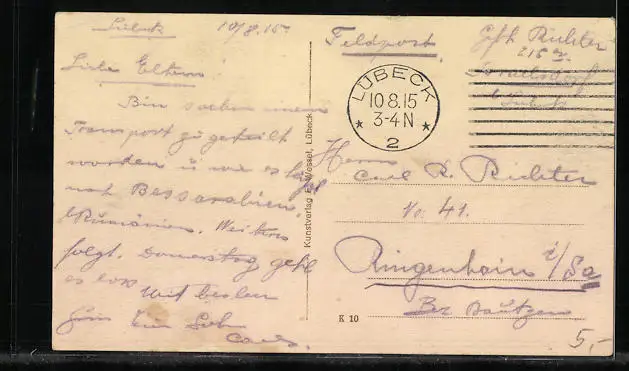 Lübeck 10/8.15.
Liebe Eltern!
Bin soeben einem
Transport zu geteilt
worden u. wie es
nach Bessarabien,
(Rumänien. Weiteres
folgt. Donnerstag geht
es los Mit besten
Euer Sohn
Carl.
Kunstverlag Wessel, Lübeck
Feldpost.
Gefr. Richter
Israelsdorf
b/Lübeck
LÜBECK
10 8.15
3-4 N
* 2 *
Herrn
Carl R. Richter
No. 41.
Ringenhain i/Sa
Bz Bautzen
K 10
5,-